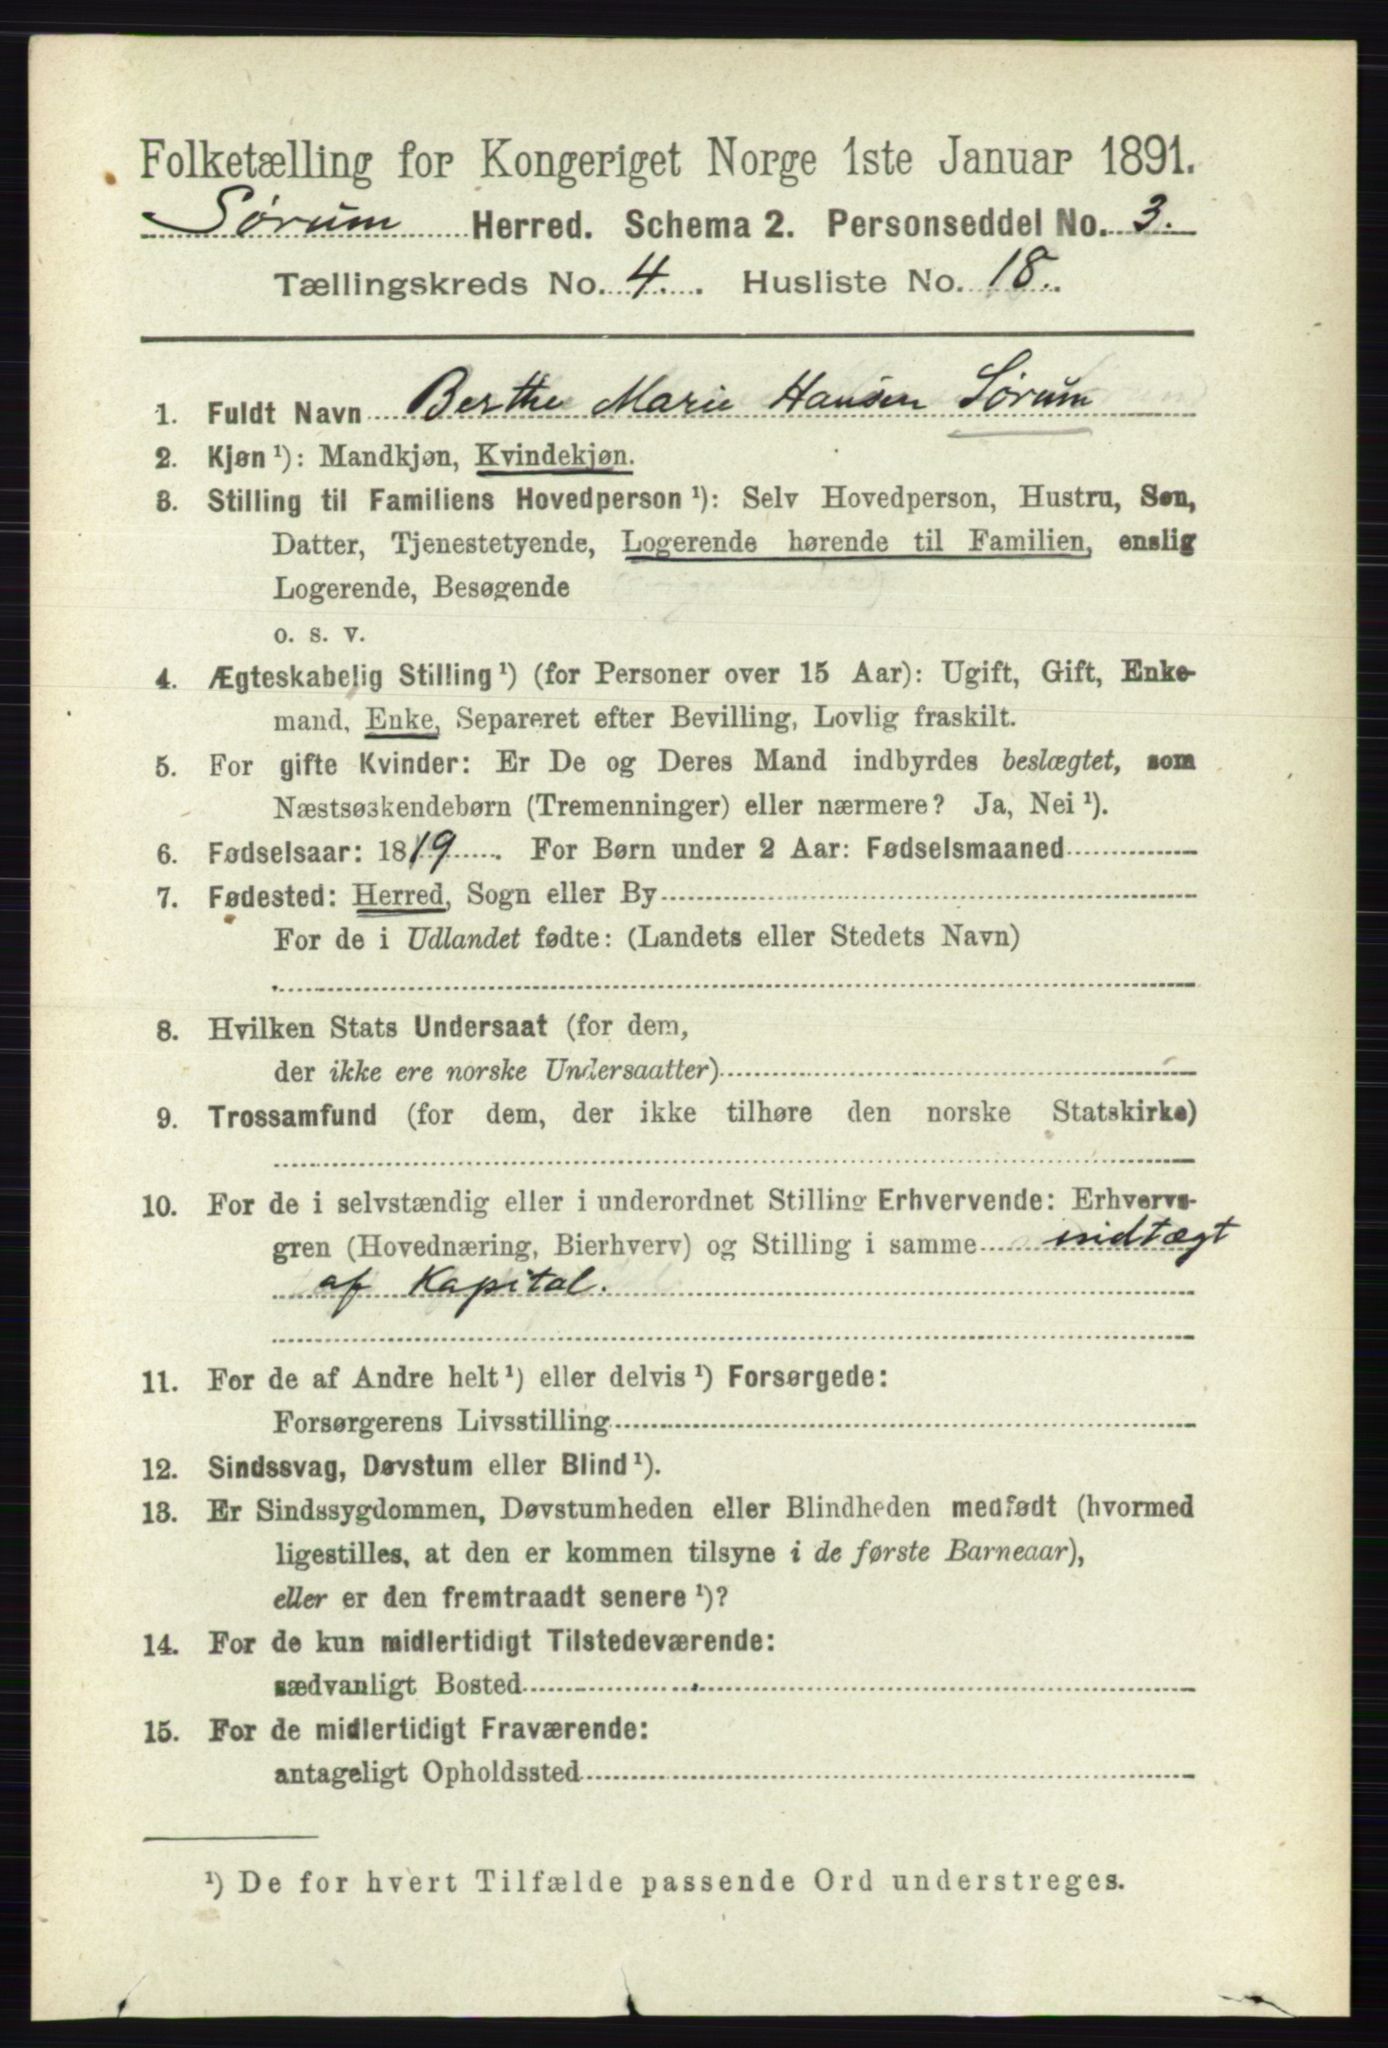 Folketælling for Kongeriget Norge 1ste Januar 1891.
Sørum Herred. Schema 2. Personseddel No. 3.
Tællingskreds No. 4. Husliste No. 18.
1. Fuldt Navn Berthe Marie Hansen Sørum
2. Kjøn ¹): Mandkjøn, Kvindekjøn.
3. Stilling til Familiens Hovedperson ¹): Selv Hovedperson, Hustru, Søn,
Datter, Tjenestetyende, Logerende hørende til Familien, enslig
Logerende, Besøgende
o. s. v.
4. Ægteskabelig Stilling ¹) (for Personer over 15 Aar): Ugift, Gift, Enke-
mand, Enke, Separeret efter Bevilling, Lovlig fraskilt.
5. For gifte Kvinder: Er De og Deres Mand indbyrdes beslægtet, som
Næstsøskendebørn (Tremenninger) eller nærmere? Ja, Nei ¹).
6. Fødselsaar: 1819. For Børn under 2 Aar: Fødselsmaaned
7. Fødested: Herred, Sogn eller By
For de i Udlandet fødte: (Landets eller Stedets Navn)
8. Hvilken Stats Undersaat (for dem,
der ikke ere norske Undersaatter)
9. Trossamfund (for dem, der ikke tilhøre den norske Statskirke)
10. For de i selvstændig eller i underordnet Stilling Erhvervende: Erhvervs-
gren (Hovednæring, Bierhverv) og Stilling i samme indtægt
af Kapital.
11. For de af Andre helt ¹) eller delvis ¹) Forsørgede:
Forsørgerens Livsstilling
12. Sindssvag, Døvstum eller Blind ¹).
13. Er Sindssygdommen, Døvstumheden eller Blindheden medfødt (hvormed
ligestilles, at den er kommen tilsyne i de første Barneaar),
eller er den fremtraadt senere ¹)?
14. For de kun midlertidigt Tilstedeværende:
sædvanligt Bosted
15. For de midlertidigt Fraværende:
antageligt Opholdssted
¹) De for hvert Tilfælde passende Ord understreges.